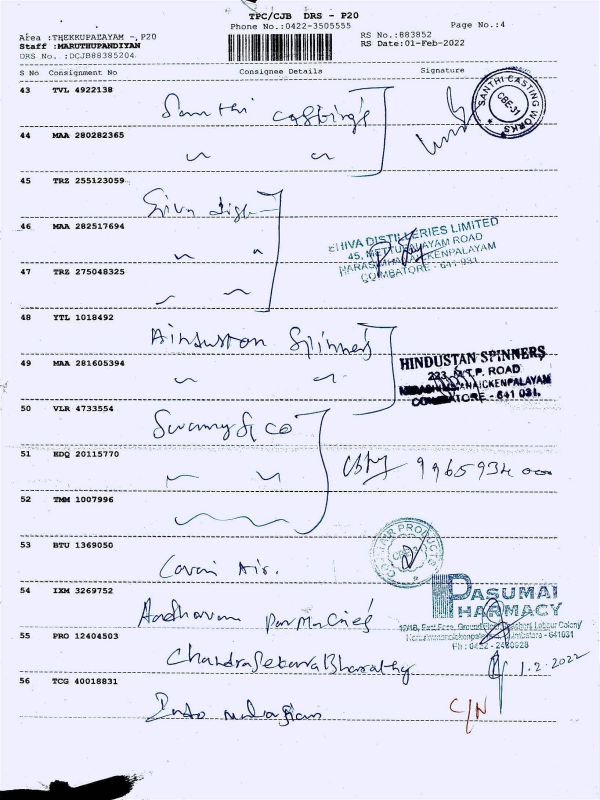 TPC/CJB DRS - P20
Phone No.:0422-3505555
Page No.:4
Area :THEKKUPALAYAM -, P20
RS No.:883852
Staff :MARUTHUPANDIYAN
RS Date:01-Feb-2022
DRS No. :DCJB88385204
S No Consignment No Consignee Details Signature
43 TVL 4922138
Santhi Castings
SANTHI CASTING WORKS CBE-31
44 MAA 280282365
45 TRZ 255123059
Siva
46 MAA 282517694
SHIVA DISTILLERIES LIMITED
45, METTUPALAYAM ROAD
NARASIMHANAICKENPALAYAM
COIMBATORE - 641 031
47 TRZ 275048325
48 YTL 1018492
Hinduston Spinners
49 MAA 281605394
HINDUSTAN SPINNERS
223, M.T.P. ROAD
NARASIMHANAICKENPALAYAM
COIMBATORE - 641 031.
50 VLR 4733554
Swamy & Co
51 KDQ 20115770
52 TMM 1007996
53 BTU 1369050
Covai Air.
AIR PRODUCTS
54 IXM 3269752
Aadhavan
PASUMAI
PHARMACY
12/1B, East Face, Ground Floor, Labour Colony
- 641031
Ph : 0422 - 2460928
55 PRO 12404503
Chandrasekara Bharathy
1.2.2022
56 TCG 40018831
C/N